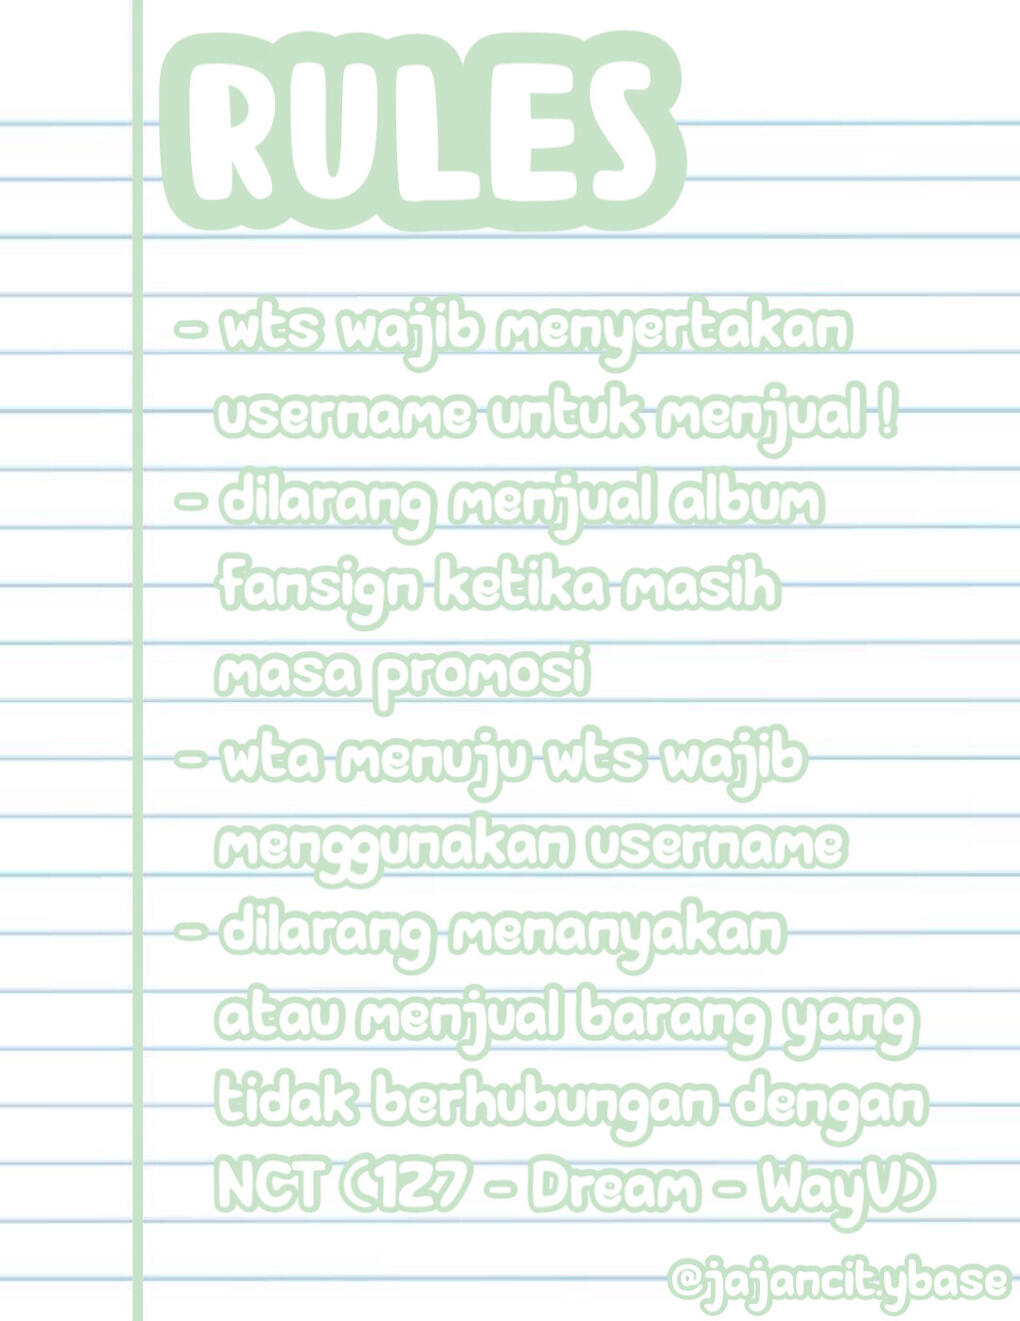 RULES
- wts wajib menyertakan
username untuk menjual !
- dilarang menjual album
fansign ketika masih
masa promosi
- wta menuju wts wajib
menggunakan username
- dilarang menanyakan
atau menjual barang yang
tidak berhubungan dengan
NCT (127 - Dream - WayV)
@jajancit.ybase